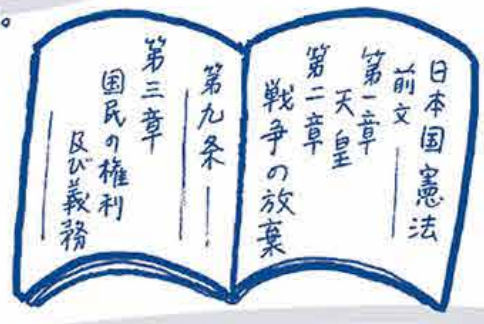 日本国憲法
前文
第一章
天皇
第二章
戦争の放棄
第九条
第三章
国民の権利
及び義務